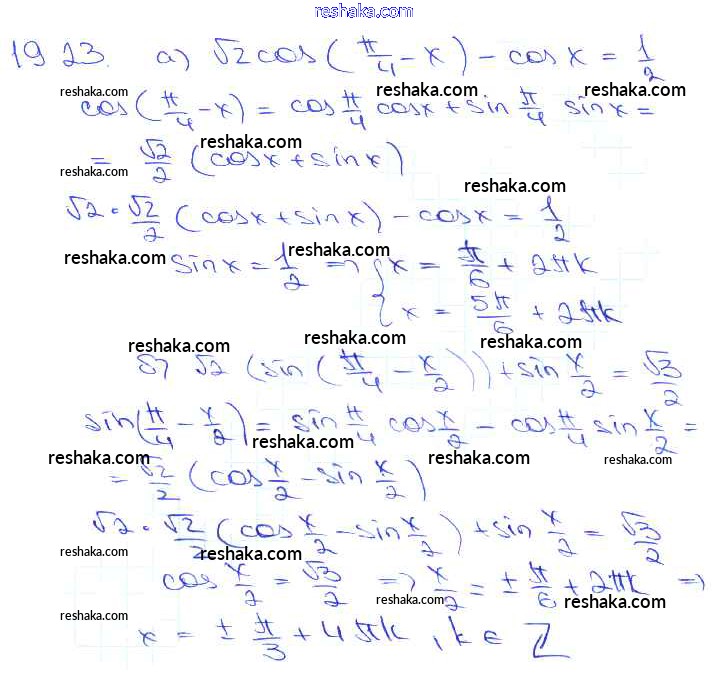 reshaka.com
19 23. а) √2 cos(π/4 - x) - cos x = 1/2
reshaka.com reshaka.com
cos(π/4 - x) = cos π/4 cos x + sin π/4 sin x =
reshaka.com
= √2/2 (cos x + sin x)
reshaka.com reshaka.com
√2 · √2/2 (cos x + sin x) - cos x = 1/2
reshaka.com reshaka.com reshaka.com
sin x = 1/2 => { x = π/6 + 2πk
x = 5π/6 + 2πk
reshaka.com reshaka.com
б) √2 (sin(π/4 - x/2)) + sin x/2 = √3/2
reshaka.com
sin(π/4 - x/2) = sin π/4 cos x/2 - cos π/4 sin x/2 =
reshaka.com
reshaka.com reshaka.com reshaka.com
= √2/2 (cos x/2 - sin x/2)
√2 · √2/2 (cos x/2 - sin x/2) + sin x/2 = √3/2
reshaka.com reshaka.com
cos x/2 = √3/2 => x/2 = ± π/6 + 2πk =>
reshaka.com reshaka.com
reshaka.com
x = ± π/3 + 4πk, k ∈ Z